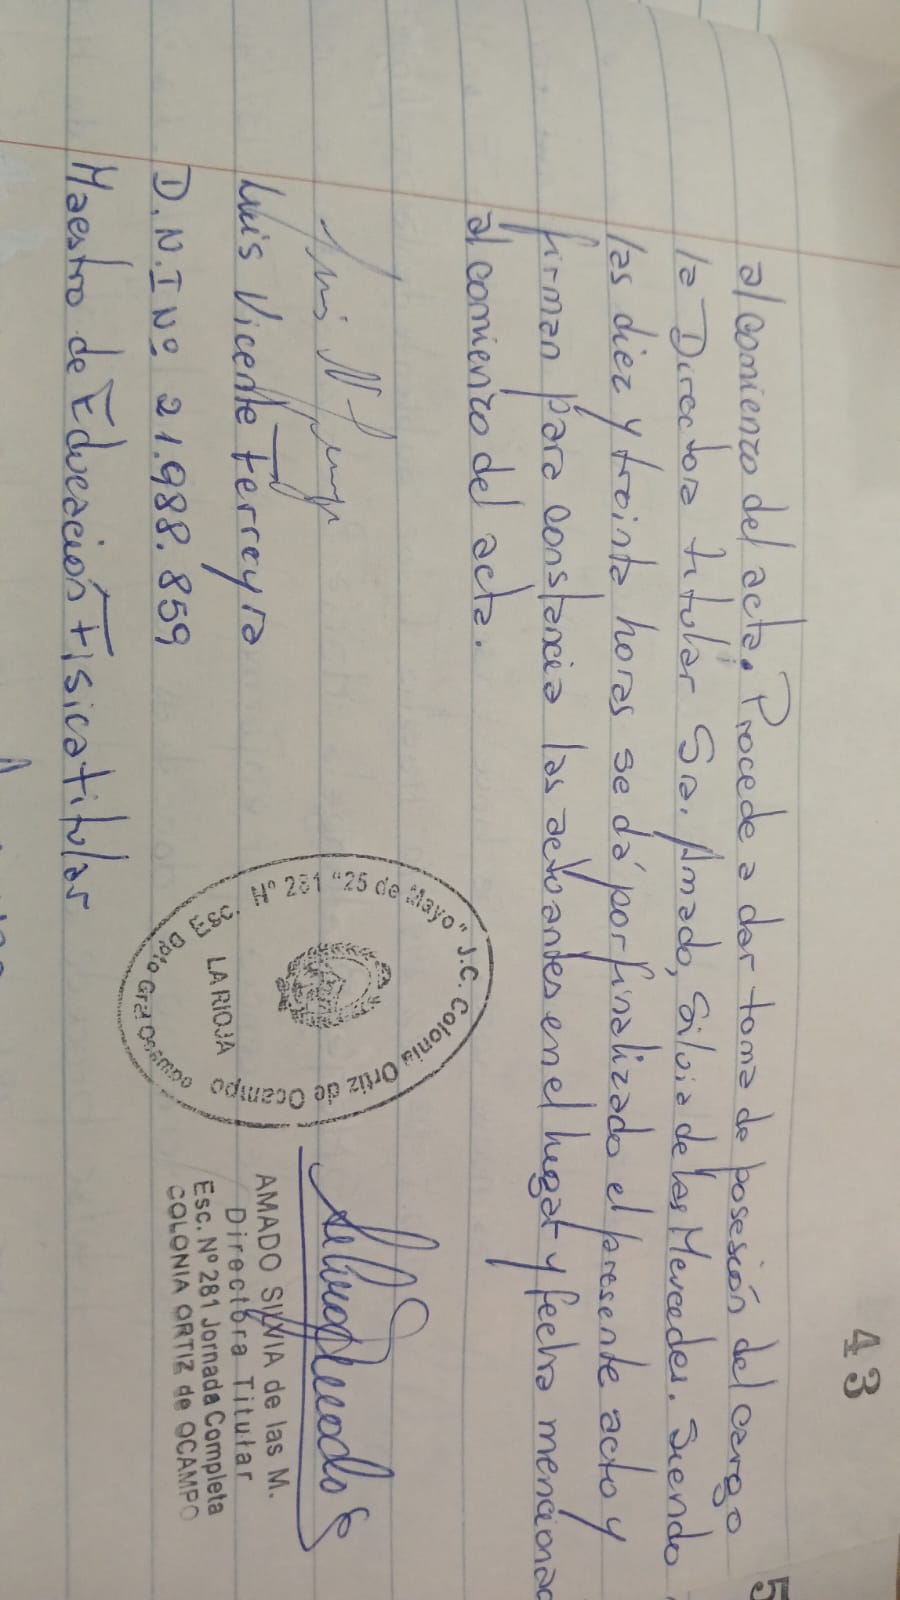 43
5
al comienzo del acta. Procede a dar toma de posesión del cargo
la Directora titular Sra. Amado, Silvia de las Mercedes. Siendo
las diez y treinta horas se dá por finalizado el presente acto y
firman para constancia las actoantes en el lugar y fecha mencionad
al comienzo del acta.
Luis Vicente Ferreyra
D.N.I Nº 21.988.859
Maestro de Educación Física titular
Esc. Nº 281 "25 de Mayo" J.C. Colonia Ortiz de Ocampo
LA RIOJA
Dpto Gral Ocampo
AMADO SILVIA de las M.
Directora Titular
Esc. Nº 281 Jornada Completa
COLONIA ORTIZ de OCAMPO